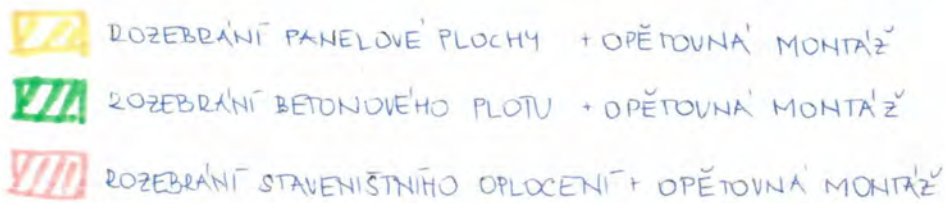 ROZEBRÁNÍ PANELOVÉ PLOCHY + OPĚTOVNÁ MONTÁŽ
ROZEBRÁNÍ BETONOVÉHO PLOTU + OPĚTOVNÁ MONTÁŽ
ROZEBRÁNÍ STAVENIŠTNÍHO OPLOCENÍ + OPĚTOVNÁ MONTÁŽ